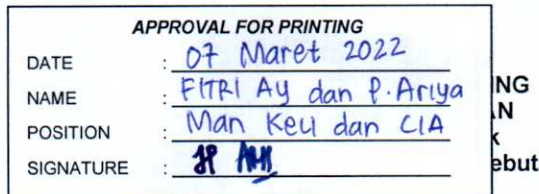 APPROVAL FOR PRINTING
DATE : 07 Maret 2022
NAME : FITRI AY dan P. Ariya
POSITION : Man Keu dan CIA
SIGNATURE :
NG
N
k
ebut